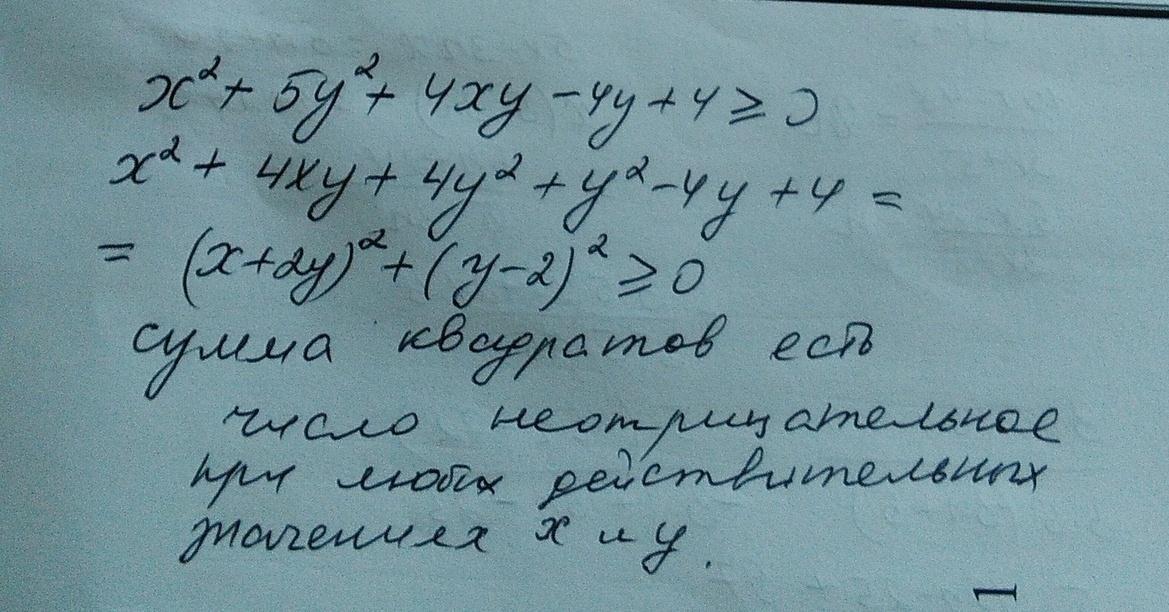 x² + 5y² + 4xy - 4y + 4 ≥ 0
x² + 4xy + 4y² + y² - 4y + 4 =
= (x+2y)² + (y-2)² ≥ 0
сумма квадратов есть
число неотрицательное
при любых действительных
значениях x и y.
1